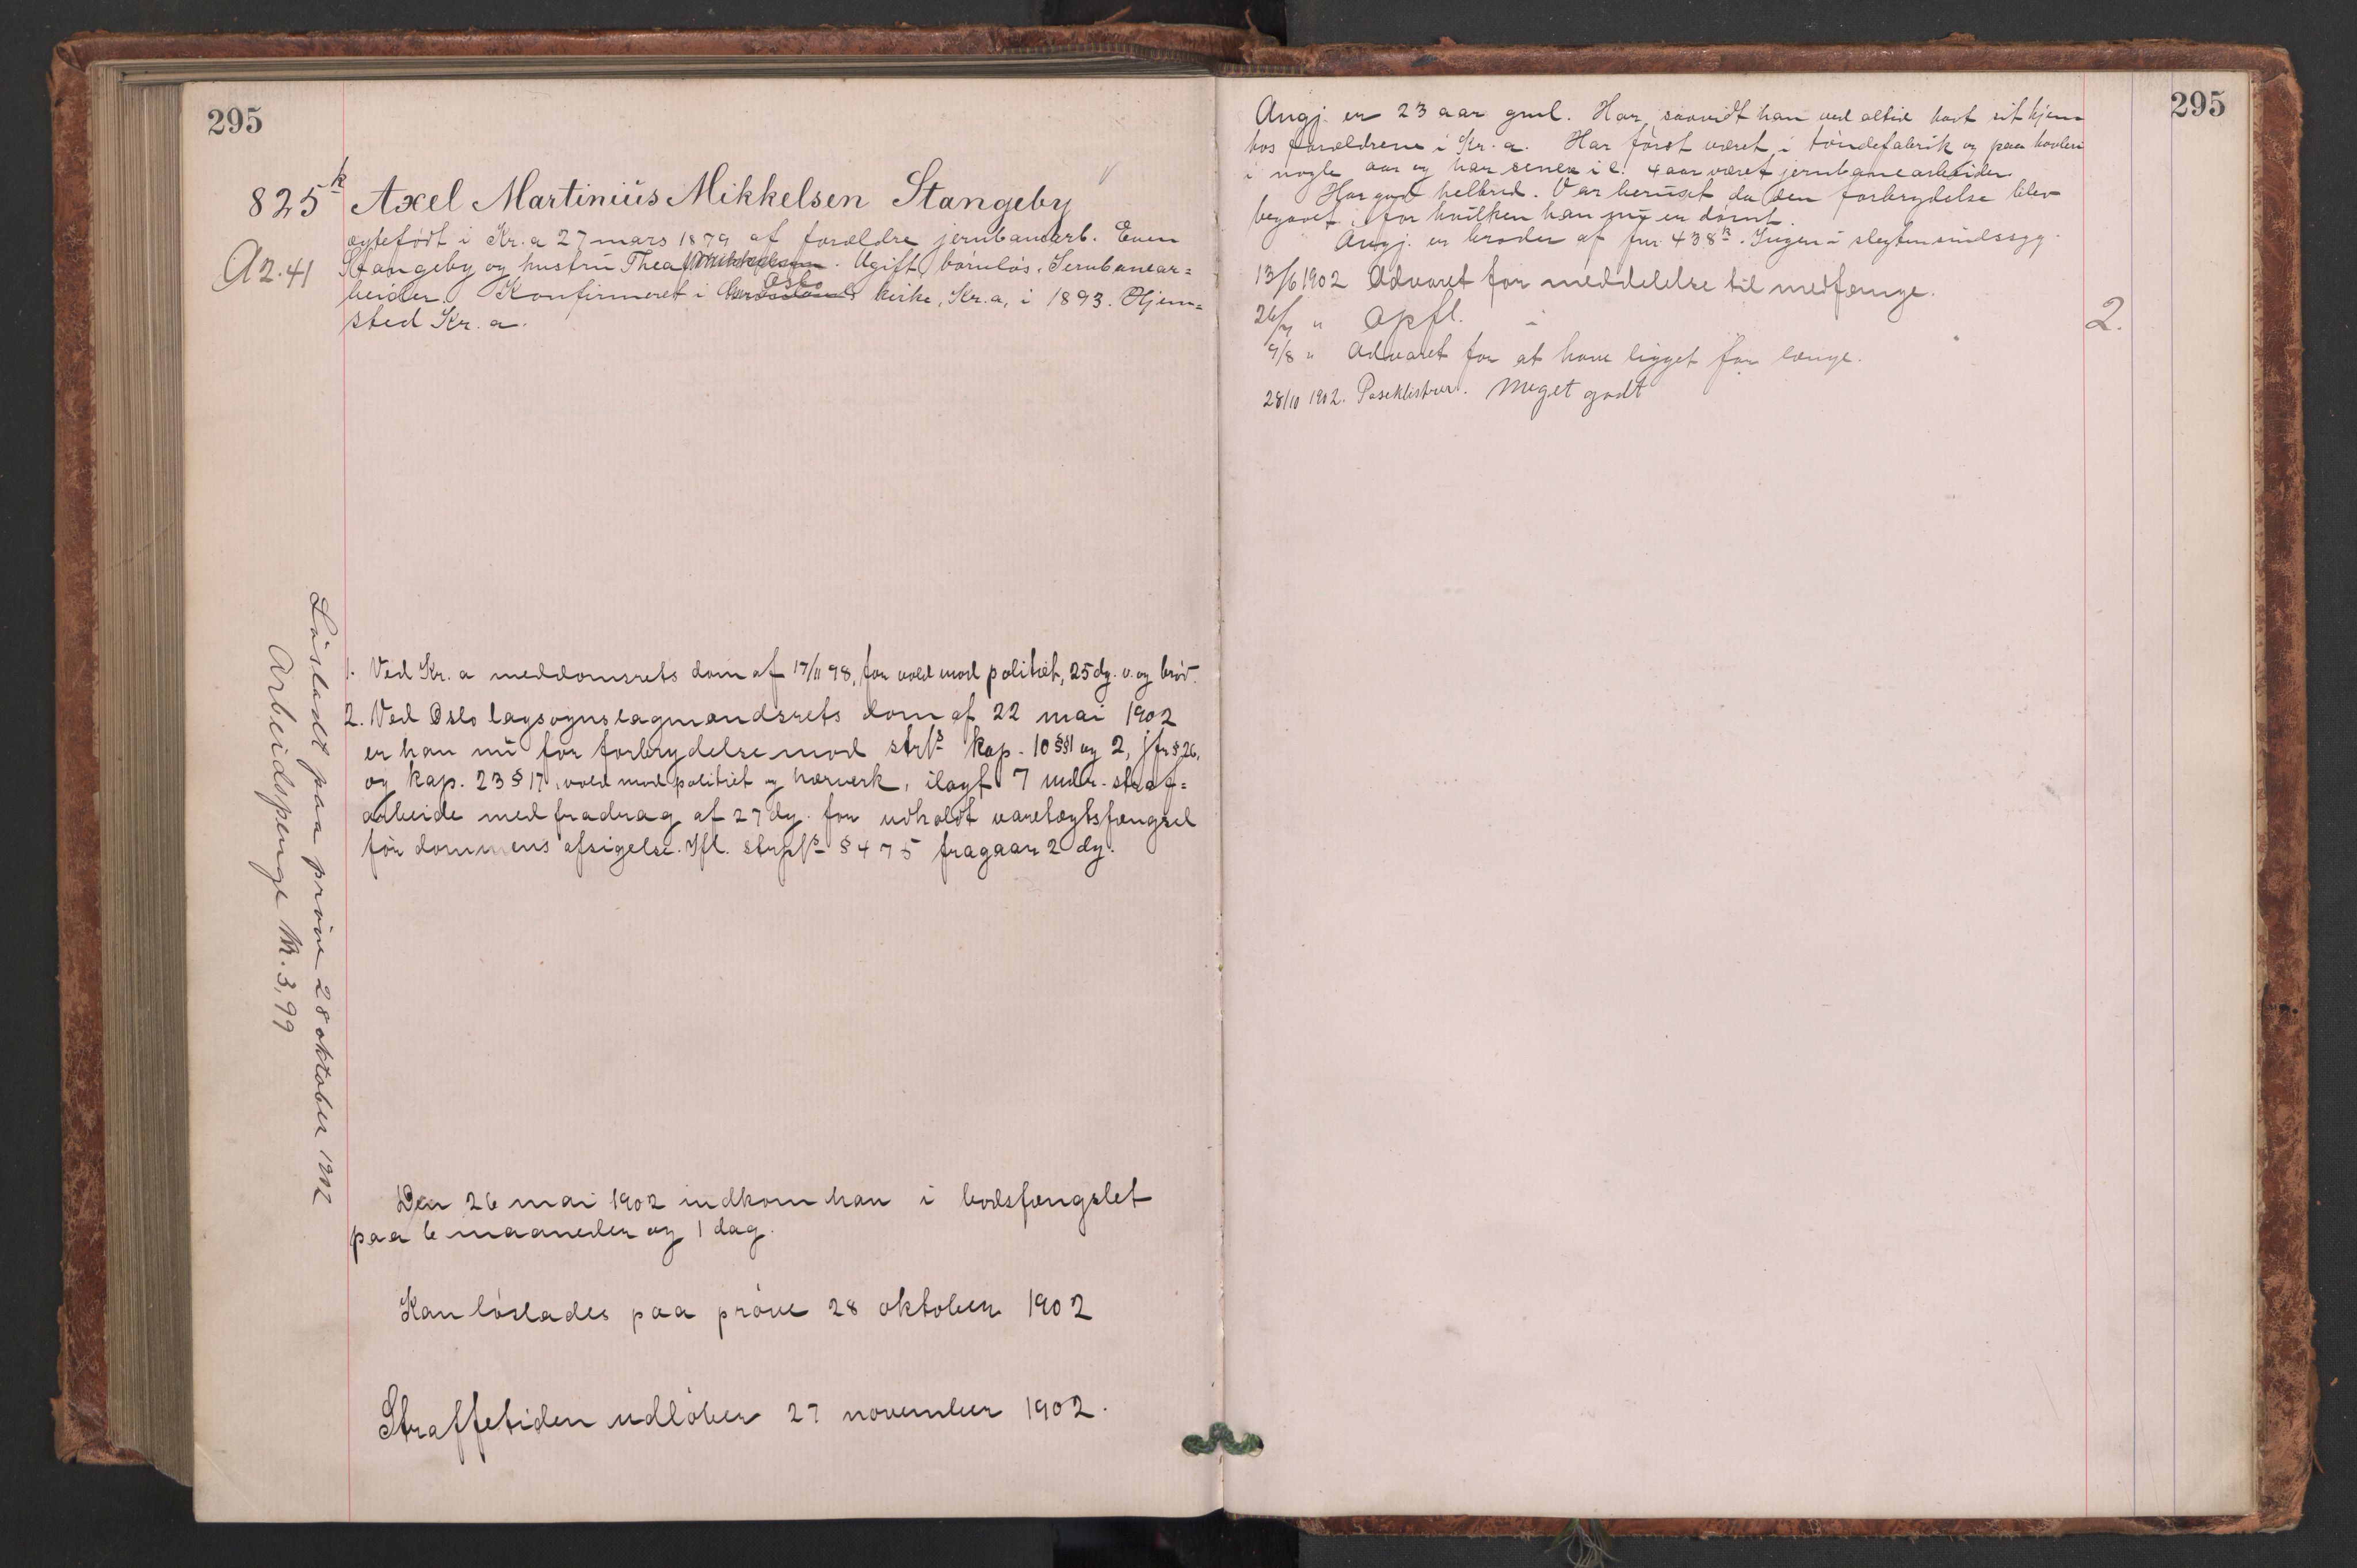 295
825k Axel Martinius Mikkelsen Stangeby
ægtefødt i Kr.a 27 mars 1879 af forældre jernbanearb. Even
A2.41 Stangeby og hustru Thea Mikkelsen. Ugift, børnløs. Jernbanear=
beider. Konfirmeret i Oslo kirke, Kr.a, i 1893. Hjem=
sted Kr.a.
1. Ved Kr.a meddomsrets dom af 17/11 98, for vold mod politiet, 25 dg. v. og brød.
2. Ved Oslo lagsognslagmandsrets dom af 22 mai 1902
er han nu for forbrydelse mod strl's kap. 10 §§1 og 2, jfr § 26,
og kap. 23 § 17, vold mod politiet og hærverk, ilagt 7 mdr. straf=
arbeide med fradrag af 27 dg. for udholdt varetægtsfængsel
før dommens afsigelse. Ifl. strpl's § 475 fragaar 2 dg.
Den 26 mai 1902 indkom han i bodsfængslet
paa 6 maaneder og 1 dag.
Kan løslades paa prøve 28 oktober 1902
Straffetiden udløber 27 november 1902.
Løsladt paa prøve 28 oktober 1902
Arbeidspenge Kr. 3,99
295
Angj. er 23 aar gml. Har, saavidt han ved altid havt sit hjem
hos forældrene i Kr.a. Har først været i tøndefabrik og paa høvleri
i nogle aar og har senere i c. 4 aar været jernbanearbeider.
Har god helbred. Var beruset da den forbrydelse blev
begaaet, for hvilken han nu er dømt.
Angj. er broder af fnr. 438k. Ingen i slegten sindssyg.
13/6 1902 Advaret for meddelelse til medfange.
26/7 " Opfl. 2.
9/8 " Advaret for at have ligget for længe.
28/10 1902. Poseklistrer. Meget godt